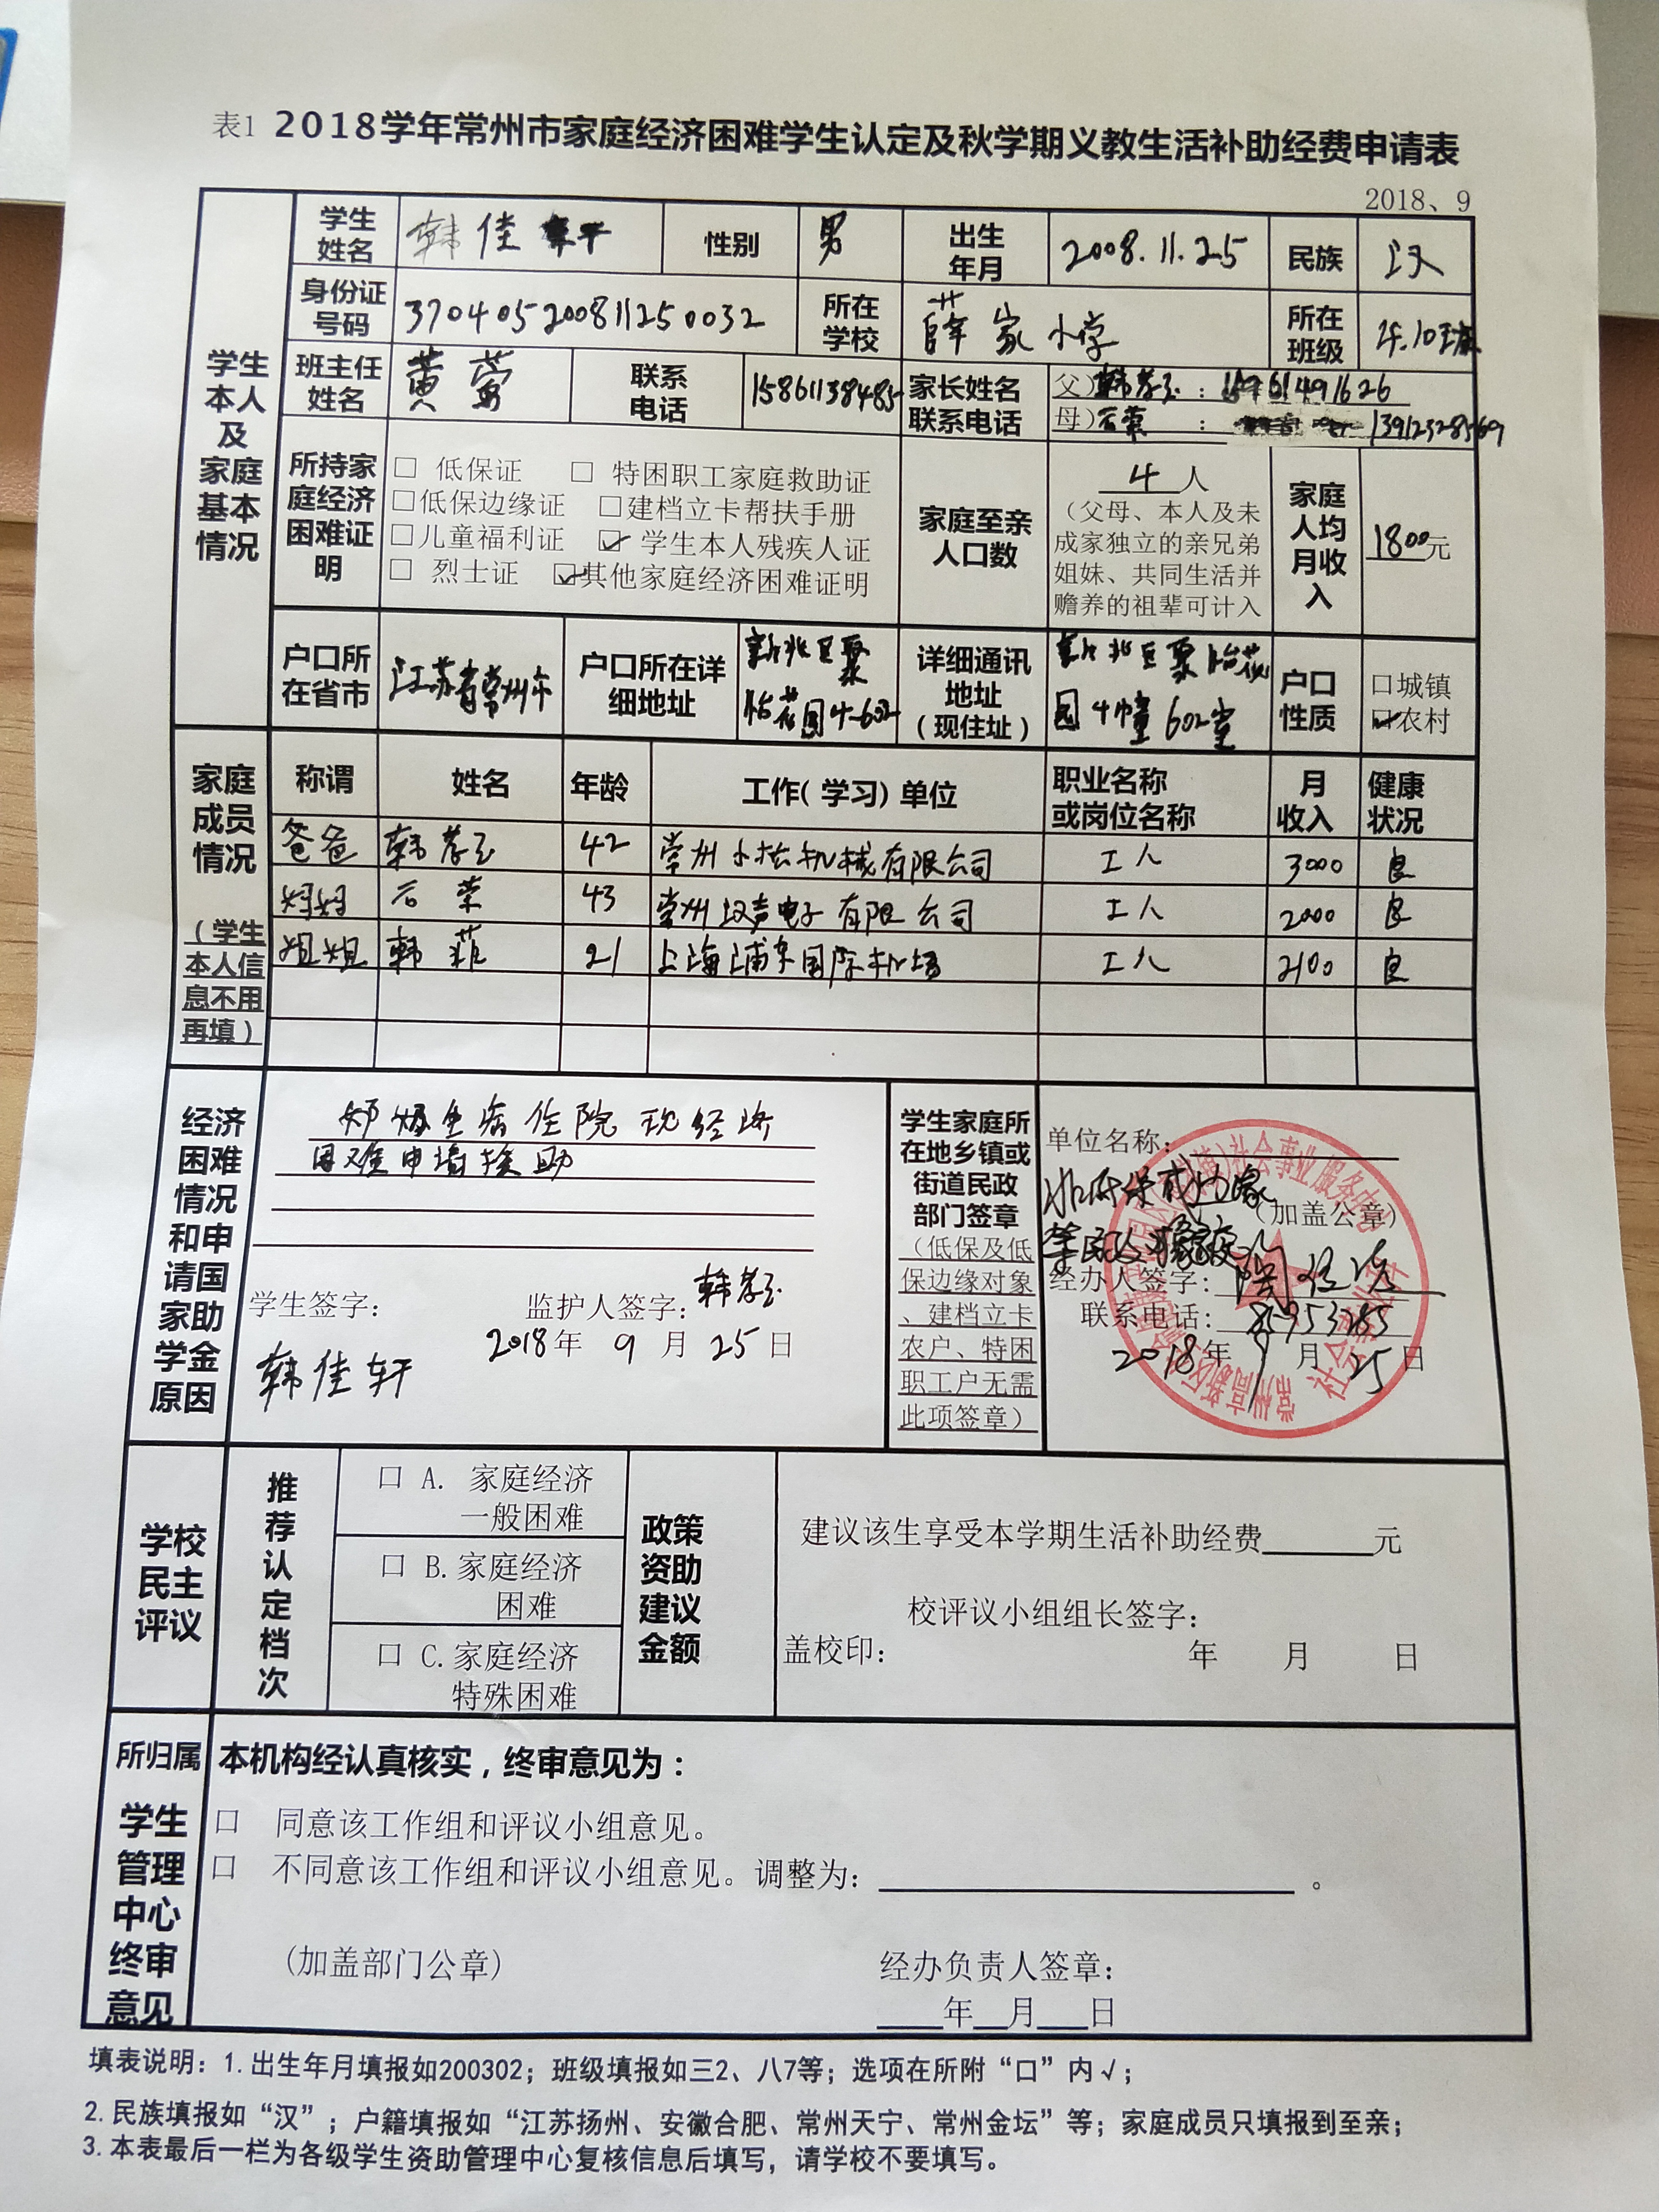 表1 2018学年常州市家庭经济困难学生认定及秋学期义教生活补助经费申请表
2018、9
学生本人及家庭基本情况
学生姓名 韩佳轩 性别 男 出生年月 2008.11.25 民族 汉
身份证号码 370405200811250032 所在学校 薛家小学 所在班级 4.10班
班主任姓名 黄莺 联系电话 15861138485 家长姓名联系电话 父)韩孝玉：15961491626
母)石荣：13912328569
所持家庭经济困难证明
□ 低保证 □ 特困职工家庭救助证
□低保边缘证 □建档立卡帮扶手册
□儿童福利证 ☑ 学生本人残疾人证
□ 烈士证 ☑其他家庭经济困难证明
家庭至亲人口数 4人
（父母、本人及未成家独立的亲兄弟姐妹、共同生活并赡养的祖辈可计入
家庭人均月收入 1800元
户口所在省市 江苏省常州市 户口所在详细地址 新北区粟怡花园4-602 详细通讯地址（现住址） 新北区粟怡花园4幢602室 户口性质 口城镇
☑农村
家庭成员情况（学生本人信息不用再填）
称谓 姓名 年龄 工作(学习)单位 职业名称或岗位名称 月收入 健康状况
爸爸 韩孝玉 42 常州小松机械有限公司 工人 3000 良
妈妈 石荣 43 常州汉声电子有限公司 工人 2000 良
姐姐 韩菲 21 上海浦东国际机场 工人 2100 良
经济困难情况和申请国家助学金原因
生病住院 现经济
困难申请援助
学生签字： 监护人签字：韩孝玉
2018年 9月 25日
韩佳轩
学生家庭所在地乡镇或街道民政部门签章
（低保及低保边缘对象、建档立卡农户、特困职工户无需此项签章）
单位名称：
（加盖公章）
经办人签字：
联系电话：
2018年 9月 25日
社会事业服务中心
社会事业科
学校民主评议
推荐认定档次
口 A. 家庭经济一般困难
口 B.家庭经济困难
口 C.家庭经济特殊困难
政策资助建议金额
建议该生享受本学期生活补助经费______元
校评议小组组长签字：
盖校印： 年 月 日
所归属学生管理中心终审意见
本机构经认真核实，终审意见为：
口 同意该工作组和评议小组意见。
口 不同意该工作组和评议小组意见。调整为：______。
(加盖部门公章) 经办负责人签章：
__年__月__日
填表说明：1.出生年月填报如200302；班级填报如三2、八7等；选项在所附“口”内√；
2.民族填报如“汉”；户籍填报如“江苏扬州、安徽合肥、常州天宁、常州金坛”等；家庭成员只填报到至亲；
3.本表最后一栏为各级学生资助管理中心复核信息后填写，请学校不要填写。